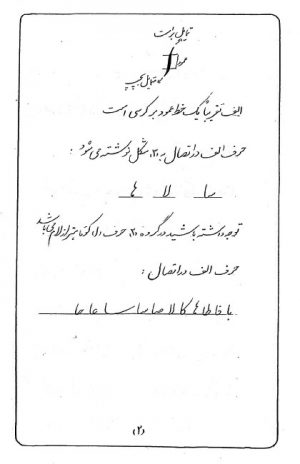 تمایل براست
عمود
تمایل بچپ
الف تقریباً یک خط عمود بر کرسی است
حرف الف در اتصال به «۳» شکل نوشته می شود :
را لا ها
توجه داشته باشید در گروه «۲» حرف «ل» کوتاهتر از لام می باشد
حرف الف در اتصال :
با فا طا ها کا لا صا سا سا عا حا
(۲)